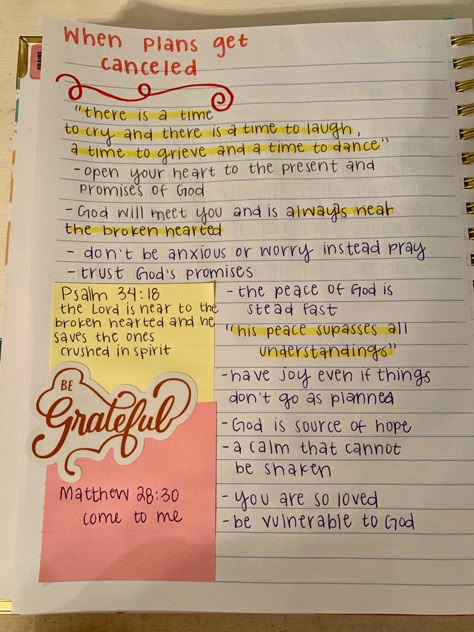 When plans get
canceled
"there is a time
to cry and there is a time to laugh,
a time to grieve and a time to dance"
- open your heart to the present and
promises of God
- God will meet you and is always near
the broken hearted
- don't be anxious or worry instead pray
- trust God's promises
Psalm 34:18
the Lord is near to the
broken hearted and he
saves the ones
crushed in spirit
BE
Grateful
Matthew 28:30
come to me
- the peace of God is
stead fast
"his peace supasses all
understandings"
- have joy even if things
don't go as planned
- God is source of hope
- a calm that cannot
be shaken
- you are so loved
- be vulnerable to God